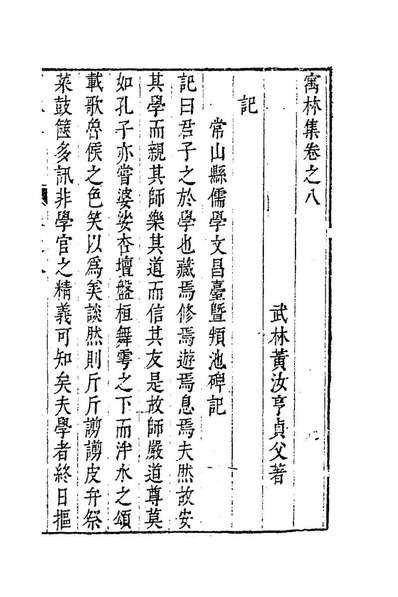 寓林集卷之八
武林黃汝亨貞父著
記
常山縣儒學文昌臺暨頖池碑記
記曰君子之於學也藏焉修焉遊焉息焉夫然故安
其學而親其師樂其道而信其友是故師嚴道尊莫
如孔子亦嘗婆娑杏壇盤桓舞雩之下而泮水之頌
載歌魯侯之色笑以為美談然則斤斤謭謭皮弁祭
菜鼓篋多訊非學官之精義可知矣夫學者終日摳